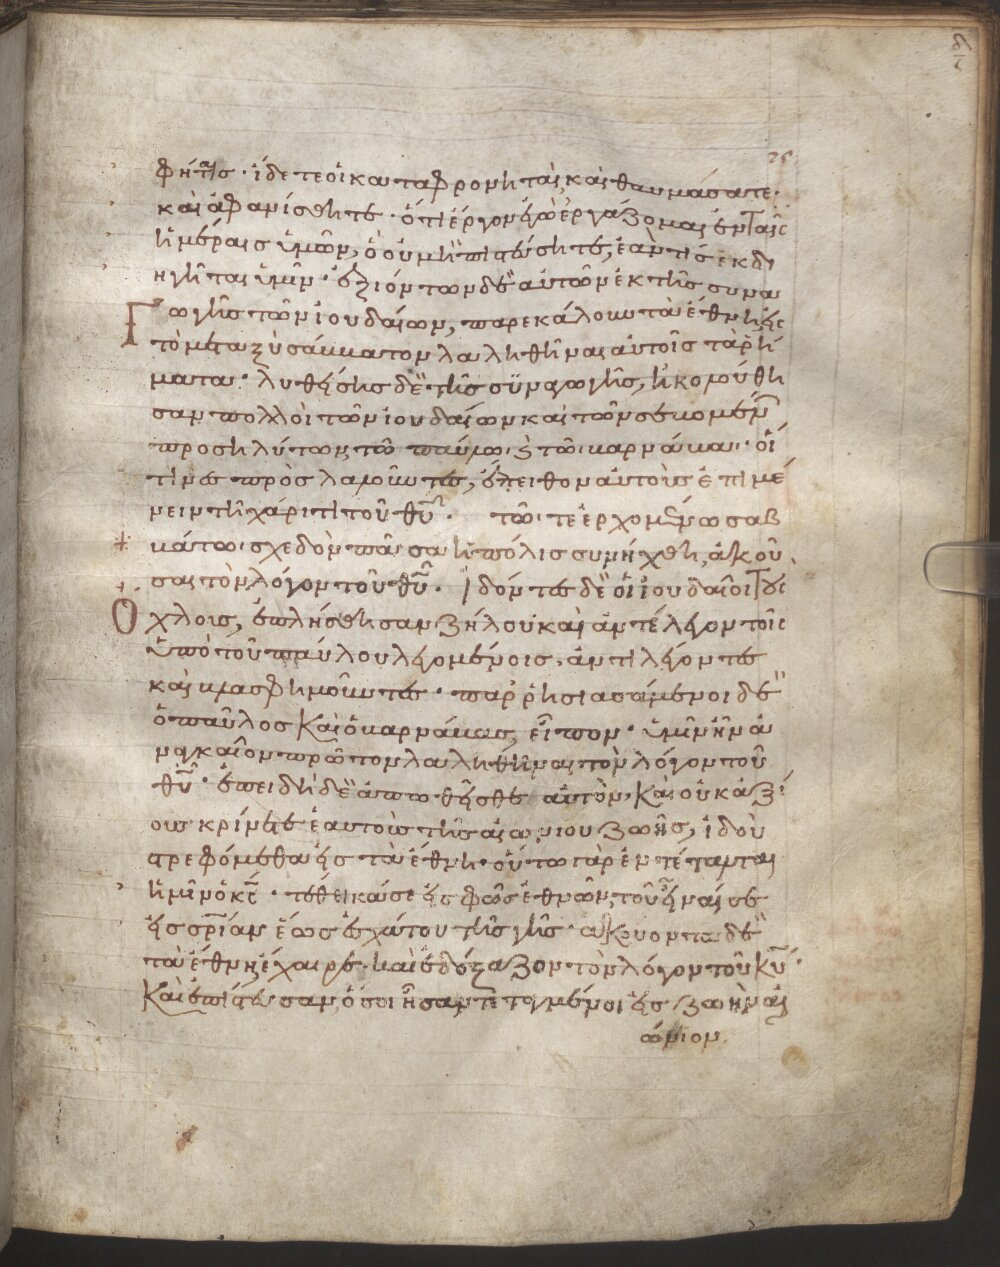 φήταις· ἴδετε οἱ καταφρονηταὶ, καὶ θαυμάσατε·
καὶ ἀφανίσθητε· ὅτι ἔργον ἐγὼ ἐργάζομαι ἐν ταῖς
ἡμέραις ὑμῶν, ὃ οὐ μὴ πιστεύσητε, ἐάν τις ἐκδι
ηγῆται ὑμῖν· ἐξιόντων δὲ αὐτῶν ἐκ τῆς συνα
γωγῆς τῶν ἰουδαίων, παρεκάλουν τὰ ἔθνη εἰς
τὸ μεταξὺ σάββατον λαληθῆναι αὐτοῖς τὰ ῥή
ματα· λυθείσης δὲ τῆς συναγωγῆς, ἠκολούθη
σαν πολλοὶ τῶν ἰουδαίων καὶ τῶν σεβομένων
προσηλύτων τῶ παύλω καὶ τῶ βαρνάβα· οἵ
τινες προσλαλοῦντες, ἔπειθον αὐτοὺς ἐπιμέ
νειν τῆ χάριτι τοῦ θυ· τῶ τε ἐρχομένω σαβ
βάτω σχεδὸν πᾶσα ἡ πόλις συνήχθη, ἀκοῦ
σαι τὸν λόγον τοῦ θυ· Ἰδόντες δὲ οἱ ἰουδαῖοι τοὺς
Ὄχλους, ἐπλήσθησαν ζήλου καὶ ἀντέλεγον τοῖς
ὑπὸ τοῦ παύλου λεγομένοις, ἀντιλέγοντες
καὶ βλασφημοῦντες· παρρησιασάμενοι δὲ
ὁ παῦλος καὶ ὁ βαρνάβας, εἶπον· ὑμῖν ἦν ἀ
ναγκαῖον πρῶτον λαληθῆναι τὸν λόγον τοῦ
θυ· ἐπειδὴ δὲ ἀπωθεῖσθε αὐτὸν, καὶ οὐκ ἀξί
ους κρίνετε ἑαυτοὺς τῆς αἰωνίου ζωῆς, ἰδοὺ
στρεφόμεθα εἰς τὰ ἔθνη· οὕτω γὰρ ἐντέταλται
ἡμῖν ὁ κς· τέθεικά σε εἰς φῶς ἐθνῶν, τοῦ εἶναί σε
εἰς σριαν ἕως ἐσχάτου τῆς γῆς· ἀκούοντα δὲ
τὰ ἔθνη ἔχαιρε· καὶ ἐδόξαζον τὸν λόγον τοῦ κυ·
Καὶ ἐπίστευσαν, ὅσοι ἦσαν τεταγμένοι εἰς ζωὴν αἰ
ώνιον.